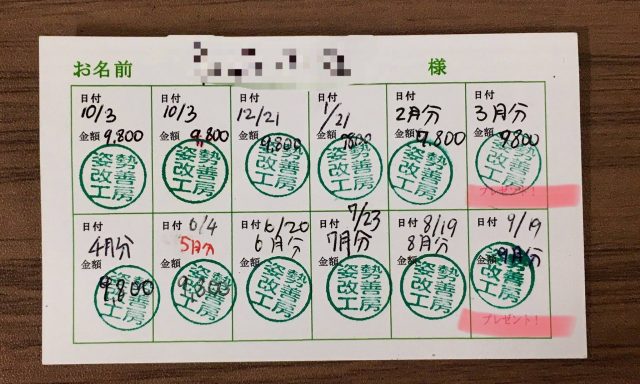 お名前 様
日付 10/3
金額 9,800
姿勢改善工房
日付 10/3
金額 9,800
姿勢改善工房
日付 12/21
金額 9,800
姿勢改善工房
日付 1/21
金額 9800
姿勢改善工房
日付 2月分
金額 9,800
姿勢改善工房
日付 3月分
金額 9800
姿勢改善工房
プレゼント!
日付 4月分
金額 9,800
姿勢改善工房
日付 6/4
5月分
金額 9,800
姿勢改善工房
日付 6/20
6月分
金額
姿勢改善工房
日付 7/23
7月分
金額
姿勢改善工房
日付 8/19
8月分
金額
姿勢改善工房
日付 9/19
9月分
金額
姿勢改善工房
プレゼント!